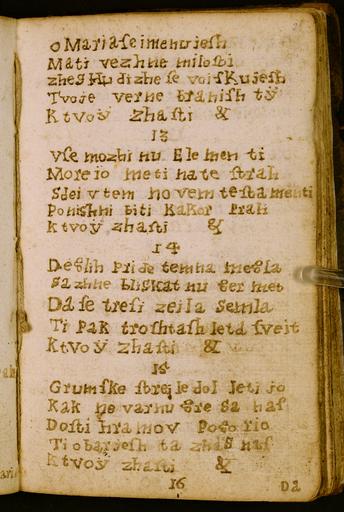 o Maria se imenujesh
Mati vezhne milosti
zhes Hudizhe se voiskujesh
Tvoje verne branish tÿ
K tvoÿ zhasti &
13
Vse mozhi nu Elemen ti
Morejo meti na te strah
Sdei v tem novem testamenti
Ponishni biti kakor Prah
k tvoÿ zhasti &
14
pride temna
bliskat nu
Da se tresi zeila Semla
Ti pak troshtash leta sveit
K tvoÿ zhasti &
15
Grumske strejle dol letijo
Kak ne varnu sa nas
Dosti hramov
Ti obarjesh ta nas
k tvoÿ zhasti &
16 Da